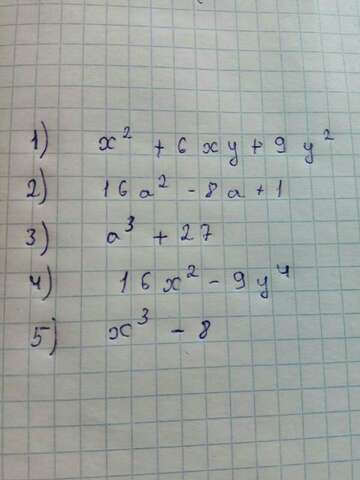 1) x² + 6xy + 9y²
2) 16a² - 8a + 1
3) a³ + 27
4) 16x² - 9y⁴
5) x³ - 8